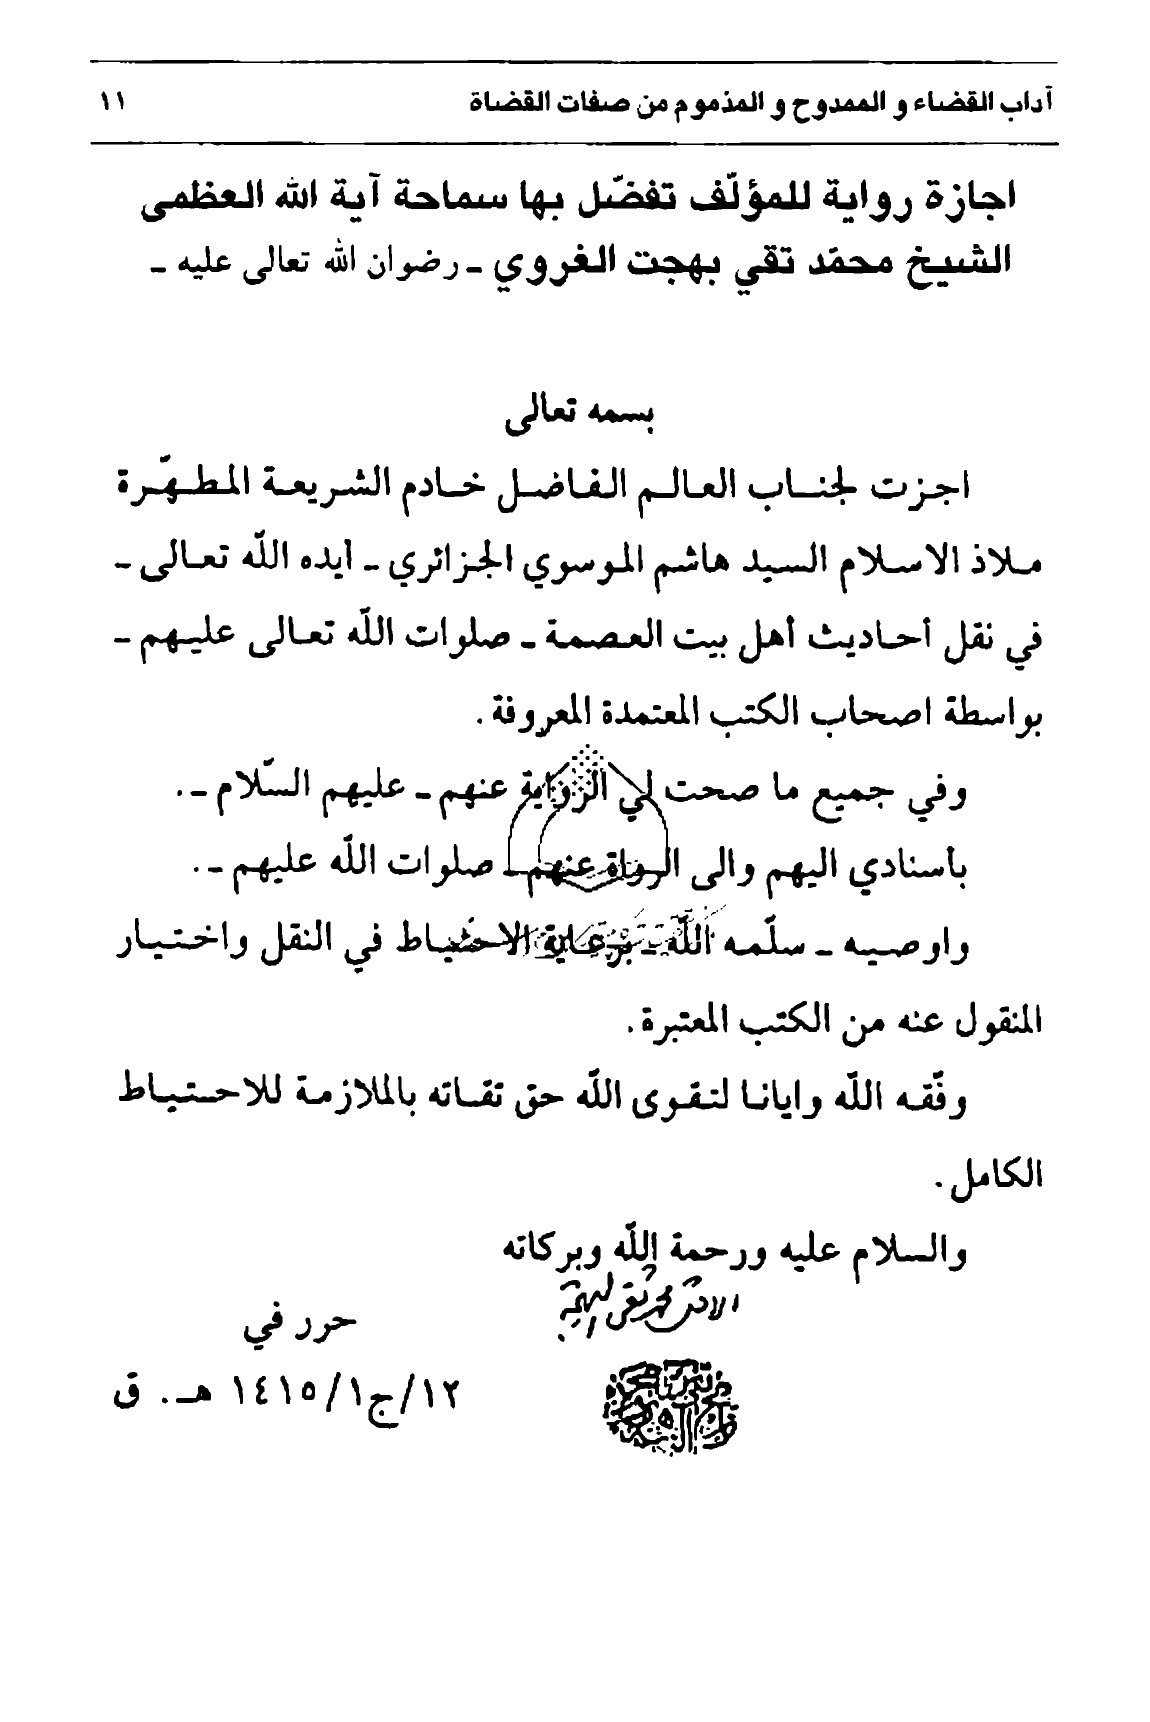 آداب القضاء و الممدوح و المذموم من صفات القضاة ١١
اجازة رواية للمؤلّف تفضّل بها سماحة آية الله العظمى
الشيخ محمّد تقي بهجت الغروي ـ رضوان الله تعالى عليه ـ
بسمه تعالى
اجزت لجناب العالم الفاضل خادم الشريعة المطهّرة
ملاذ الاسلام السيد هاشم الموسوي الجزائري ـ ايده اللّه تعالى ـ
في نقل أحاديث أهل بيت العصمة ـ صلوات اللّه تعالى عليهم ـ
بواسطة اصحاب الكتب المعتمدة المعروفة .
وفي جميع ما صحت لي الرواية عنهم ـ عليهم السّلام ـ .
بأسنادي اليهم والى الرواة عنهم ـ صلوات اللّه عليهم ـ .
واوصيه ـ سلّمه اللّه ـ برعاية الاحتياط في النقل واختيار
المنقول عنه من الكتب المعتبرة .
وفّقه اللّه وايانا لتقوى اللّه حق تقاته بالملازمة للاحتياط
الكامل .
والسلام عليه ورحمة اللّه وبركاته
حرر في
١٢/ج١/١٤١٥ هـ . ق